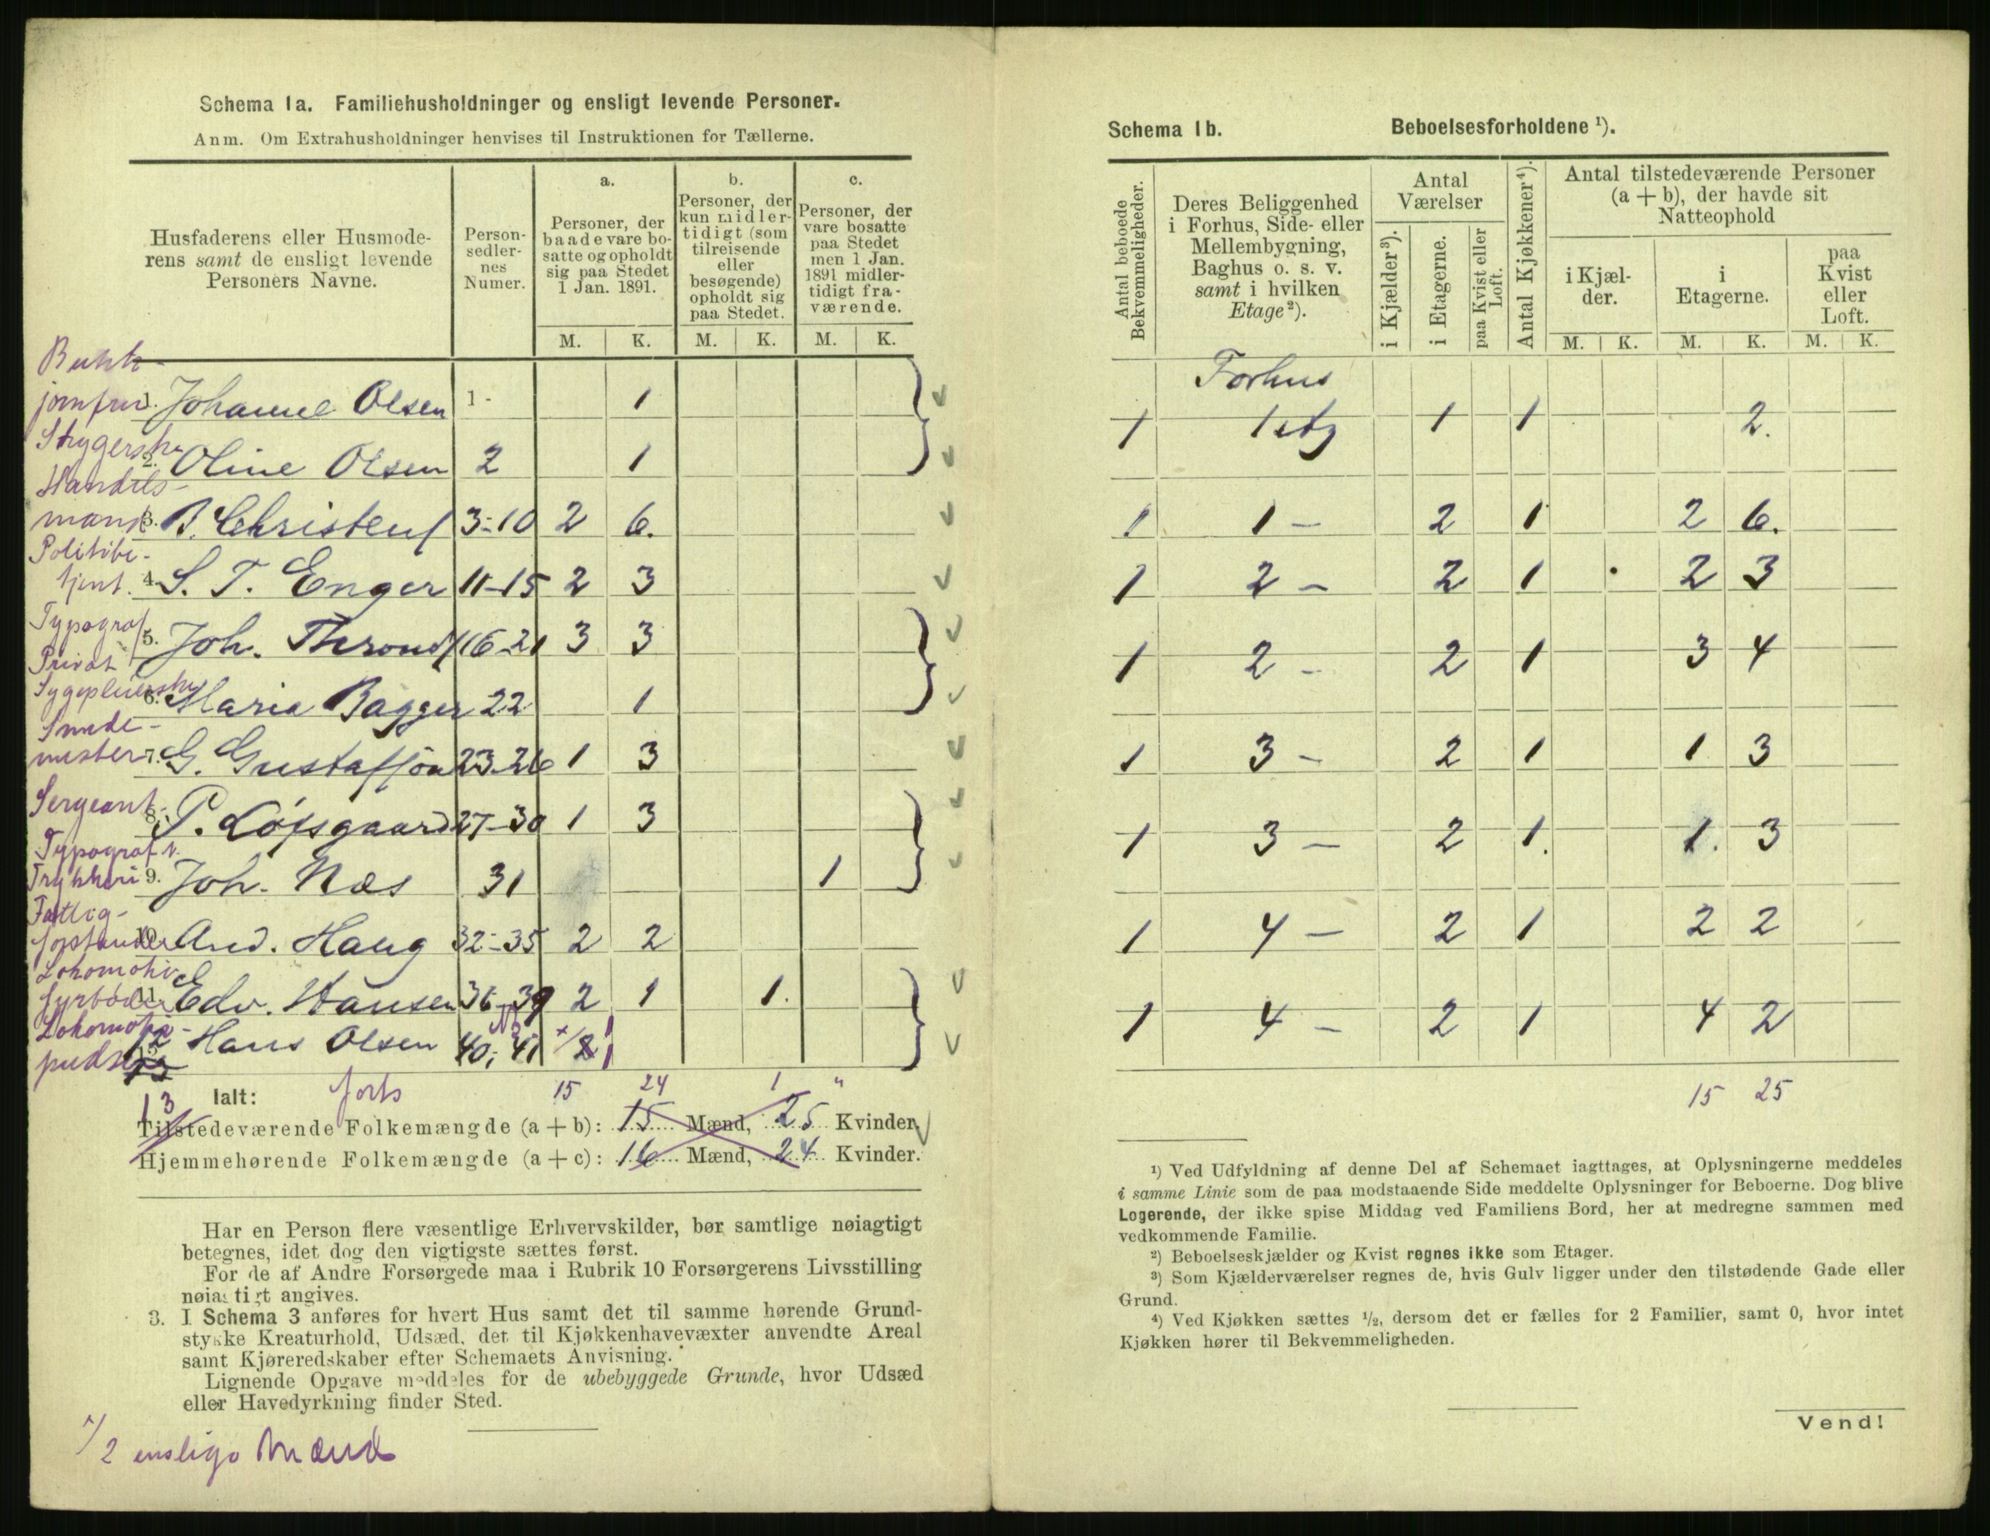 Schema 1a. Familiehusholdninger og ensligt levende Personer.
Anm. Om Extrahusholdninger henvises til Instruktionen for Tællerne.
Husfaderens eller Husmode-
rens samt de ensligt levende
Personers Navne.
Person-
sedler-
nes
Numer.
a.
Personer, der
baade vare bo-
satte og opholdt
sig paa Stedet
1 Jan. 1891.
b.
Personer, der
kun midler-
tidigt (som
tilreisende
eller
besøgende)
opholdt sig
paa Stedet.
c.
Personer, der
vare bosatte
paa Stedet
men 1 Jan.
1891 midler-
tidigt fra-
værende.
M. K. M. K. M. K.
jomfru 1. Johanne Olsen 1 - 1
Strygerske
2. Oline Olsen 2 1
Handels-
mand 3. B. Christens 3-10 2 6.
Politibe-
tjent. 4. S. T. Enger 11-15 2 3
Typograf
5. Joh. Thronds 16-21 3 3
Privat
Sygepleierske
6. Maria Bagger 22 1
Smede-
mester 7. G. Gustafson 23-26 1 3
Sergeant
8. P. Løfsgaard 27-30 1 3
Typograf i
Trykkeri 9. Joh. Næs 31 1
Fattig-
forstander 10. And. Haug 32-35 2 2
Lokomotiv
fyrbøder 11. Edv. Hansen 36-39 2 1 1.
Lokomotiv-
pudser 12 Hans Olsen 40, 41
Ialt: forts 15 24 1 "
13
Tilstedeværende Folkemængde (a + b): 15 Mænd, 25 Kvinder.
Hjemmehørende Folkemængde (a + c): 16 Mænd, 24 Kvinder.
Har en Person flere væsentlige Erhvervskilder, bør samtlige nøiagtigt
betegnes, idet dog den vigtigste sættes først.
For de af Andre Forsørgede maa i Rubrik 10 Forsørgerens Livsstilling
nøiagtigt angives.
3. I Schema 3 anføres for hvert Hus samt det til samme hørende Grund-
stykke Kreaturhold, Udsæd, det til Kjøkkenhavevæxter anvendte Areal
samt Kjøreredskaber efter Schemaets Anvisning.
Lignende Opgave meddeles for de ubebyggede Grunde, hvor Udsæd
eller Havedyrkning finder Sted.
x/ 2 enslige Mænd
Schema 1b. Beboelsesforholdene ¹).
Antal beboede
Bekvemmeligheder.
Deres Beliggenhed
i Forhus, Side- eller
Mellembygning,
Baghus o. s. v.
samt i hvilken
Etage ²).
Antal
Værelser
i Kjælder ³).
i Etagerne.
paa Kvist eller
Loft.
Antal Kjøkkener ⁴).
Antal tilstedeværende Personer
(a + b), der havde sit
Natteophold
i Kjæl-
der.
i
Etagerne.
paa
Kvist
eller
Loft.
M. K. M. K. M. K.
Forhus
1 1 etg 1 1 2.
1 1 - 2 1 2 6.
1 2 - 2 1 2 3
1 2 - 2 1 3 4
1 3 - 2 1 1 3
1 3 - 2 1. 1. 3
1 4 - 2 1 2 2
1 4 - 2 1 4 2
15 25
¹) Ved Udfyldning af denne Del af Schemaet iagttages, at Oplysningerne meddeles
i samme Linie som de paa modstaaende Side meddelte Oplysninger for Beboerne. Dog blive
Logerende, der ikke spise Middag ved Familiens Bord, her at medregne sammen med
vedkommende Familie.
²) Beboelseskjælder og Kvist regnes ikke som Etager.
³) Som Kjælderværelser regnes de, hvis Gulv ligger under den tilstødende Gade eller
Grund.
⁴) Ved Kjøkken sættes ½, dersom det er fælles for 2 Familier, samt 0, hvor intet
Kjøkken hører til Bekvemmeligheden.
Vend!